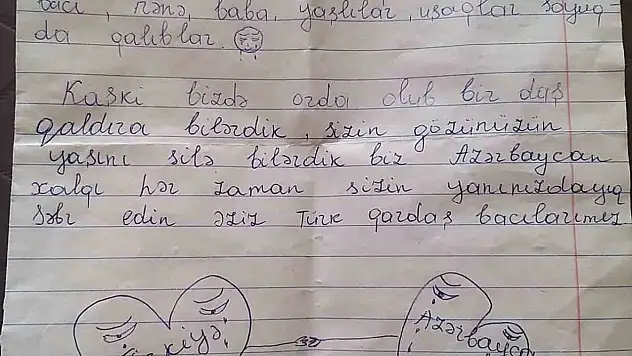 bacı, nənə baba, yaşlılar, uşaqlar soyuq-
da qalıblar.
Kaşki bizdə orda olub bir daş
qaldıra bilərdik, sizin gözünüzün
yaşını silə bilərdik biz Azərbaycan
xalqı hər zaman sizin yanınızdayıq
Səbr edin əziz Türk qardaş bacılarımız
Azərbayca